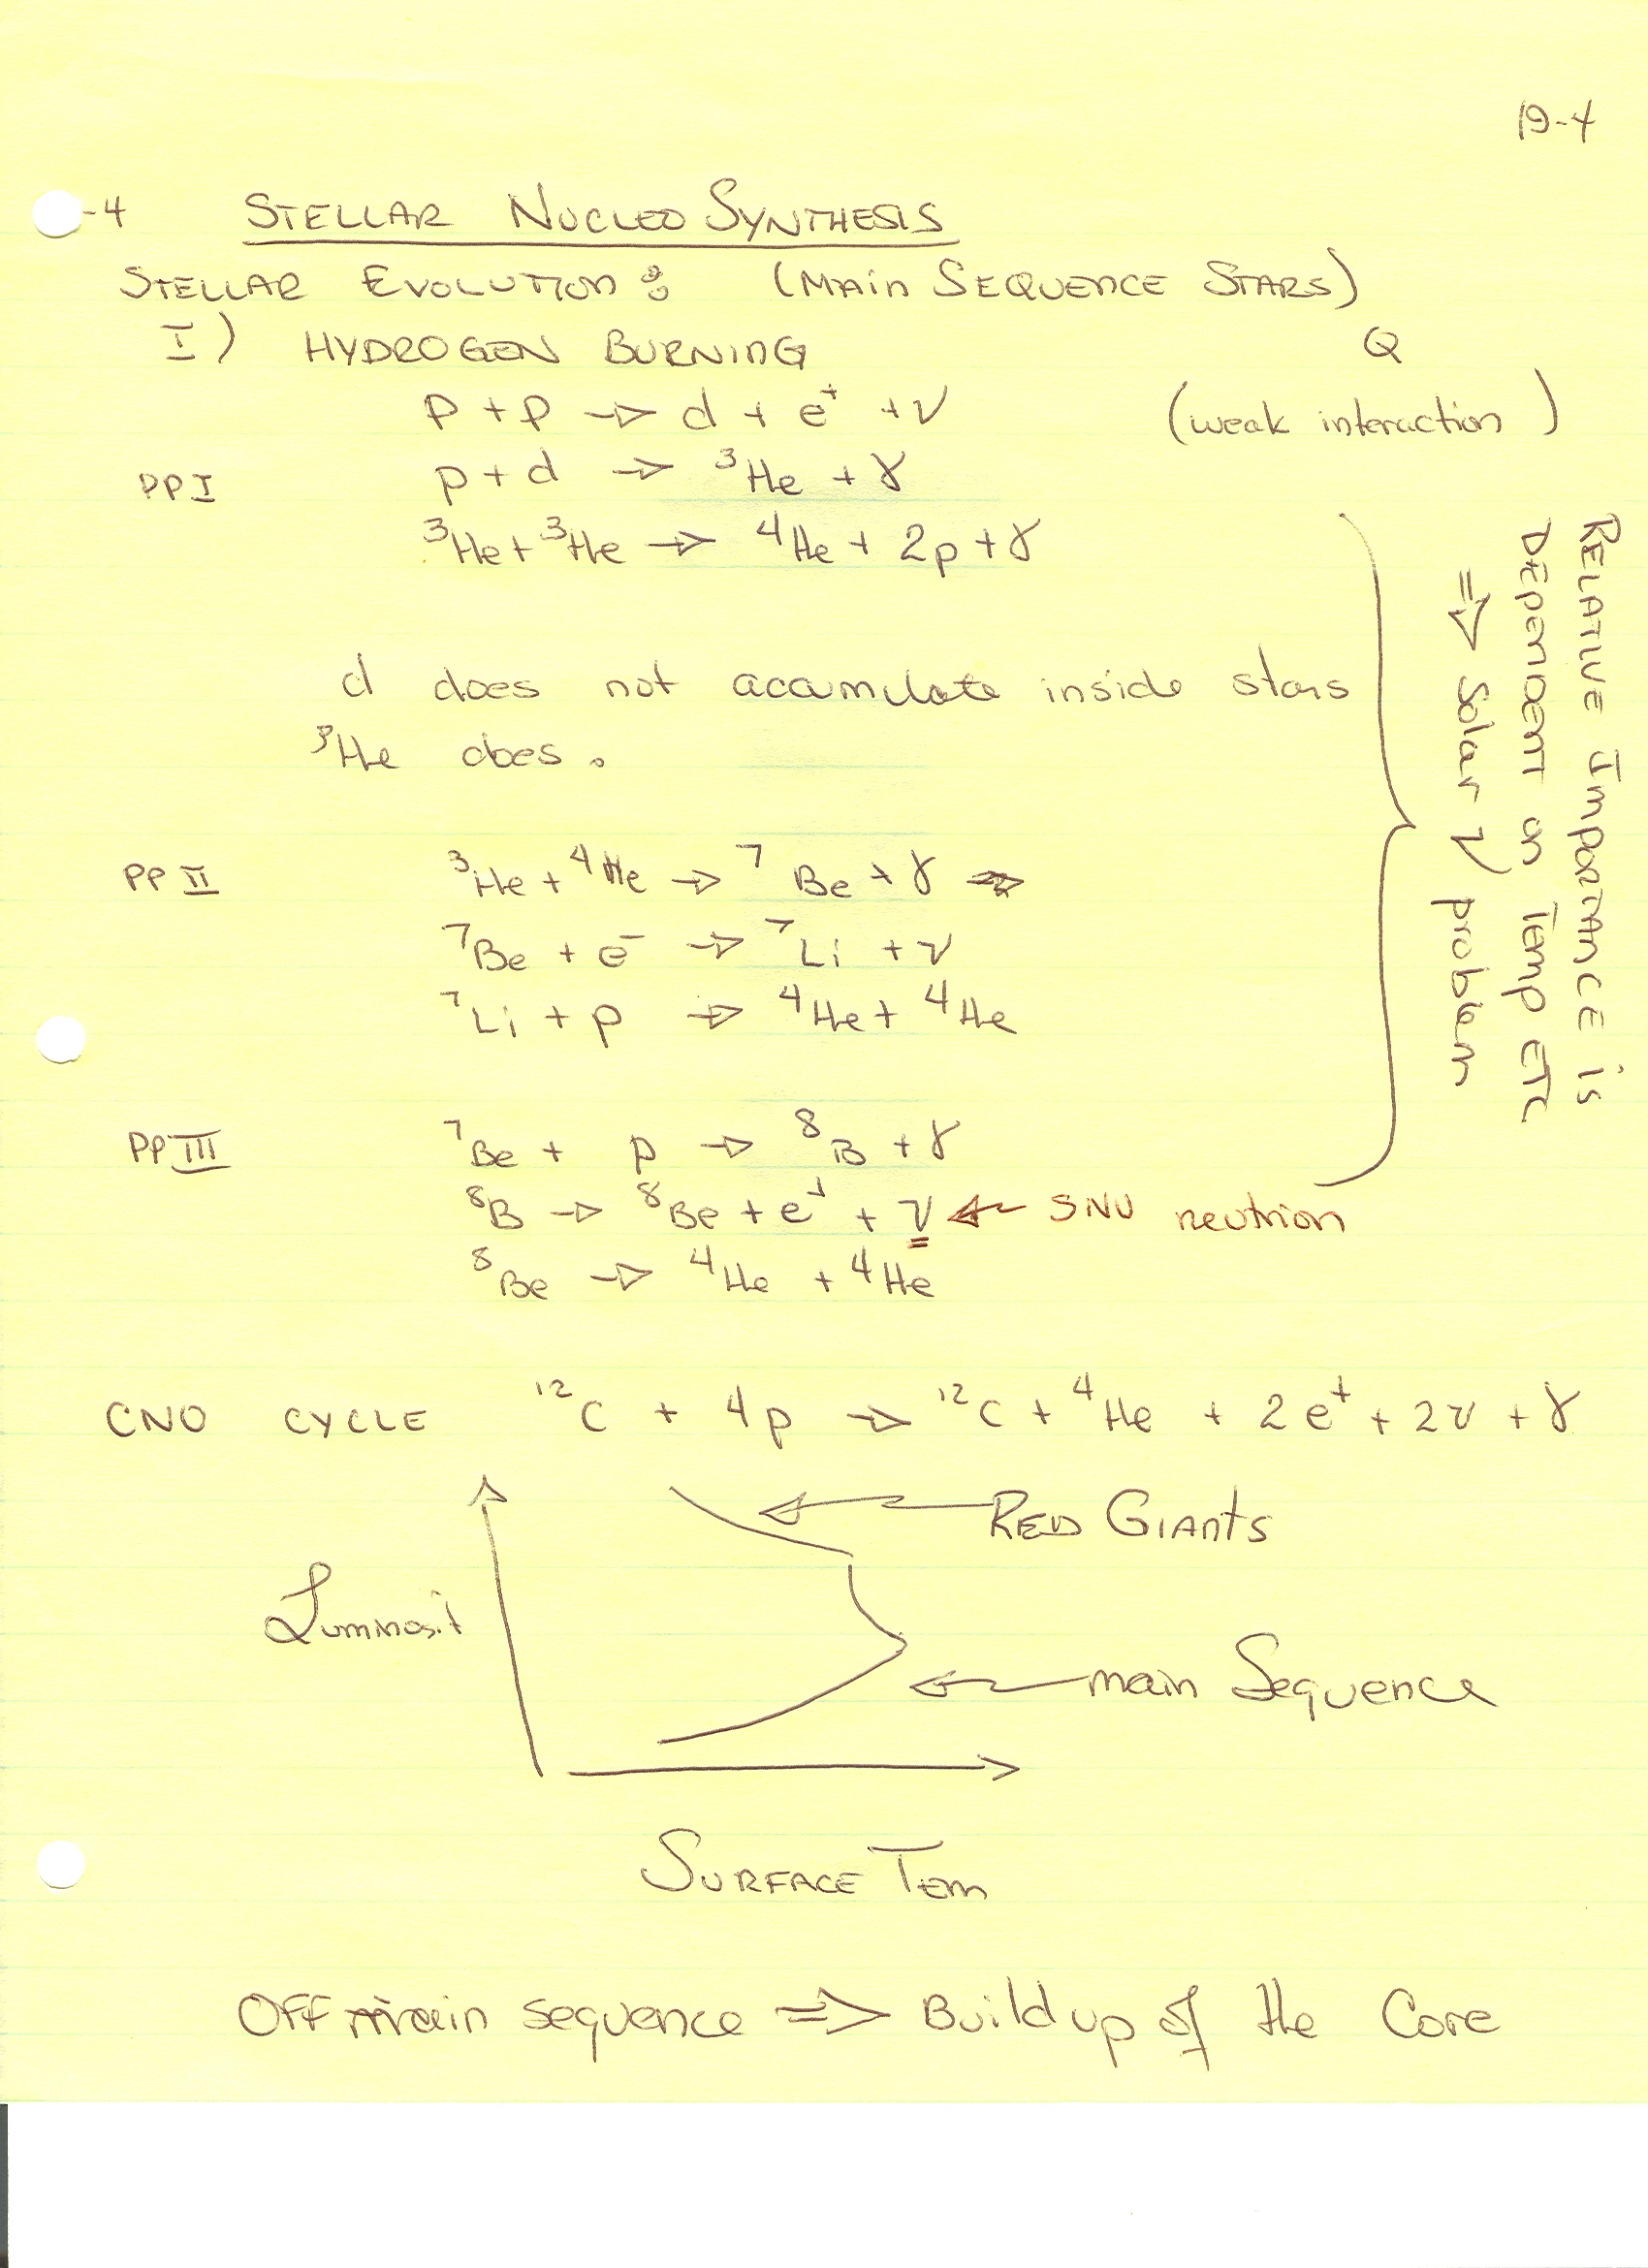 19-4
-4 STELLAR NUCLEO SYNTHESIS
STELLAR EVOLUTION: (MAIN SEQUENCE STARS)
I) HYDROGEN BURNING Q
p + p → d + e⁺ + ν (weak interaction)
PPI p + d → ³He + γ
³He + ³He → ⁴He + 2p + γ
d does not accumulate inside stars
³He does.
PP II ³He + ⁴He → ⁷Be + γ
⁷Be + e⁻ → ⁷Li + ν
⁷Li + p → ⁴He + ⁴He
PP III ⁷Be + p → ⁸B + γ
⁸B → ⁸Be + e⁺ + ν ← SNU neutrion
⁸Be → ⁴He + ⁴He
RELATIVE IMPORTANCE is
DEPENDENT on TEMP ETC
⇒ Solar ν problem
CNO CYCLE ¹²C + 4p → ¹²C + ⁴He + 2e⁺ + 2ν + γ
RED GIANTS
Luminosit
main Sequence
SURFACE Tem
Off main sequence ⇒ Build up of the Core